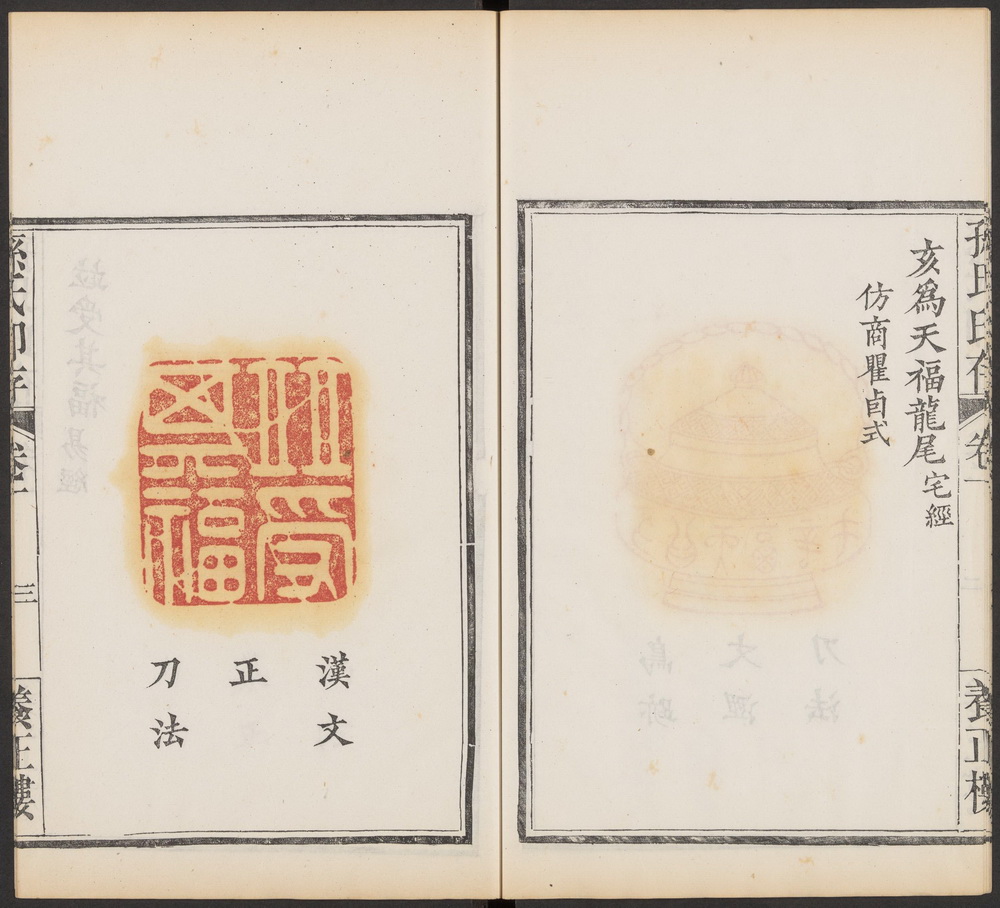 孫氏印存
卷一
養正樓
亥爲天福龍尾宅經
仿商瞿卣式
並受其福
漢文
正
刀法
孫氏印存
卷一
三
養正樓